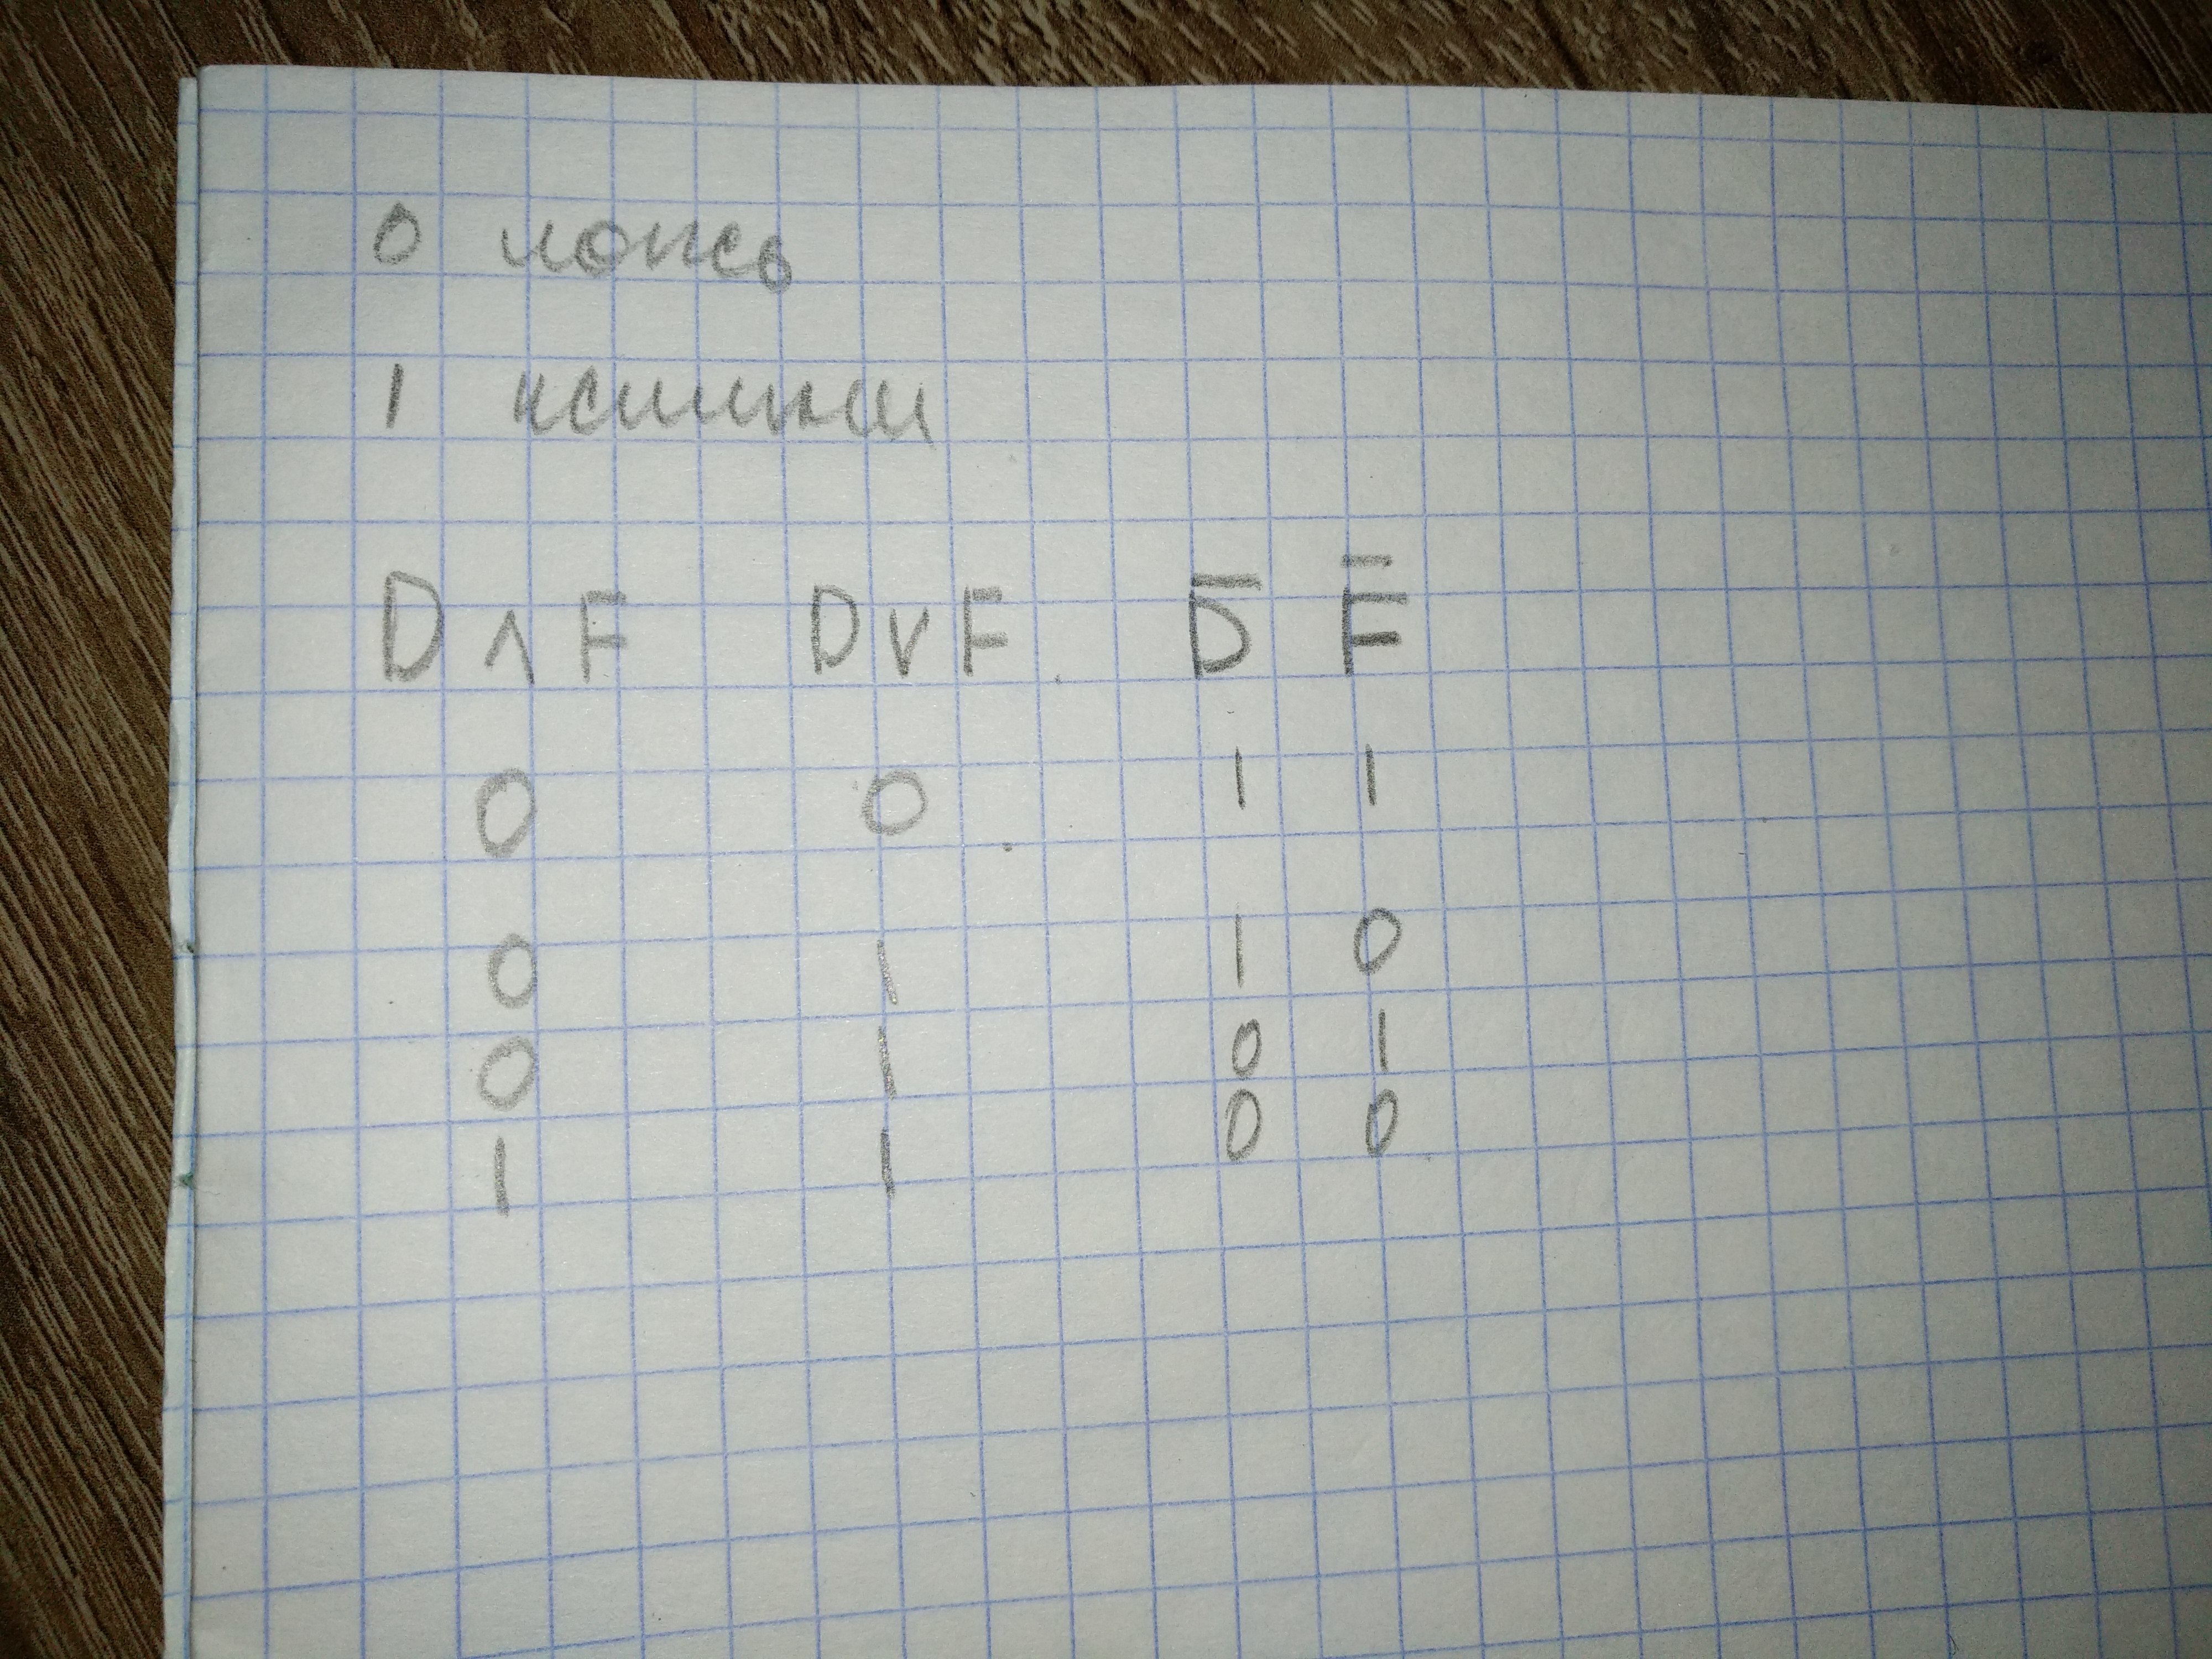 0 ложь
1 истина
D ∧ F D ∨ F D̅ F̅
0 0 1 1
0 1 1 0
0 1 0 1
1 1 0 0